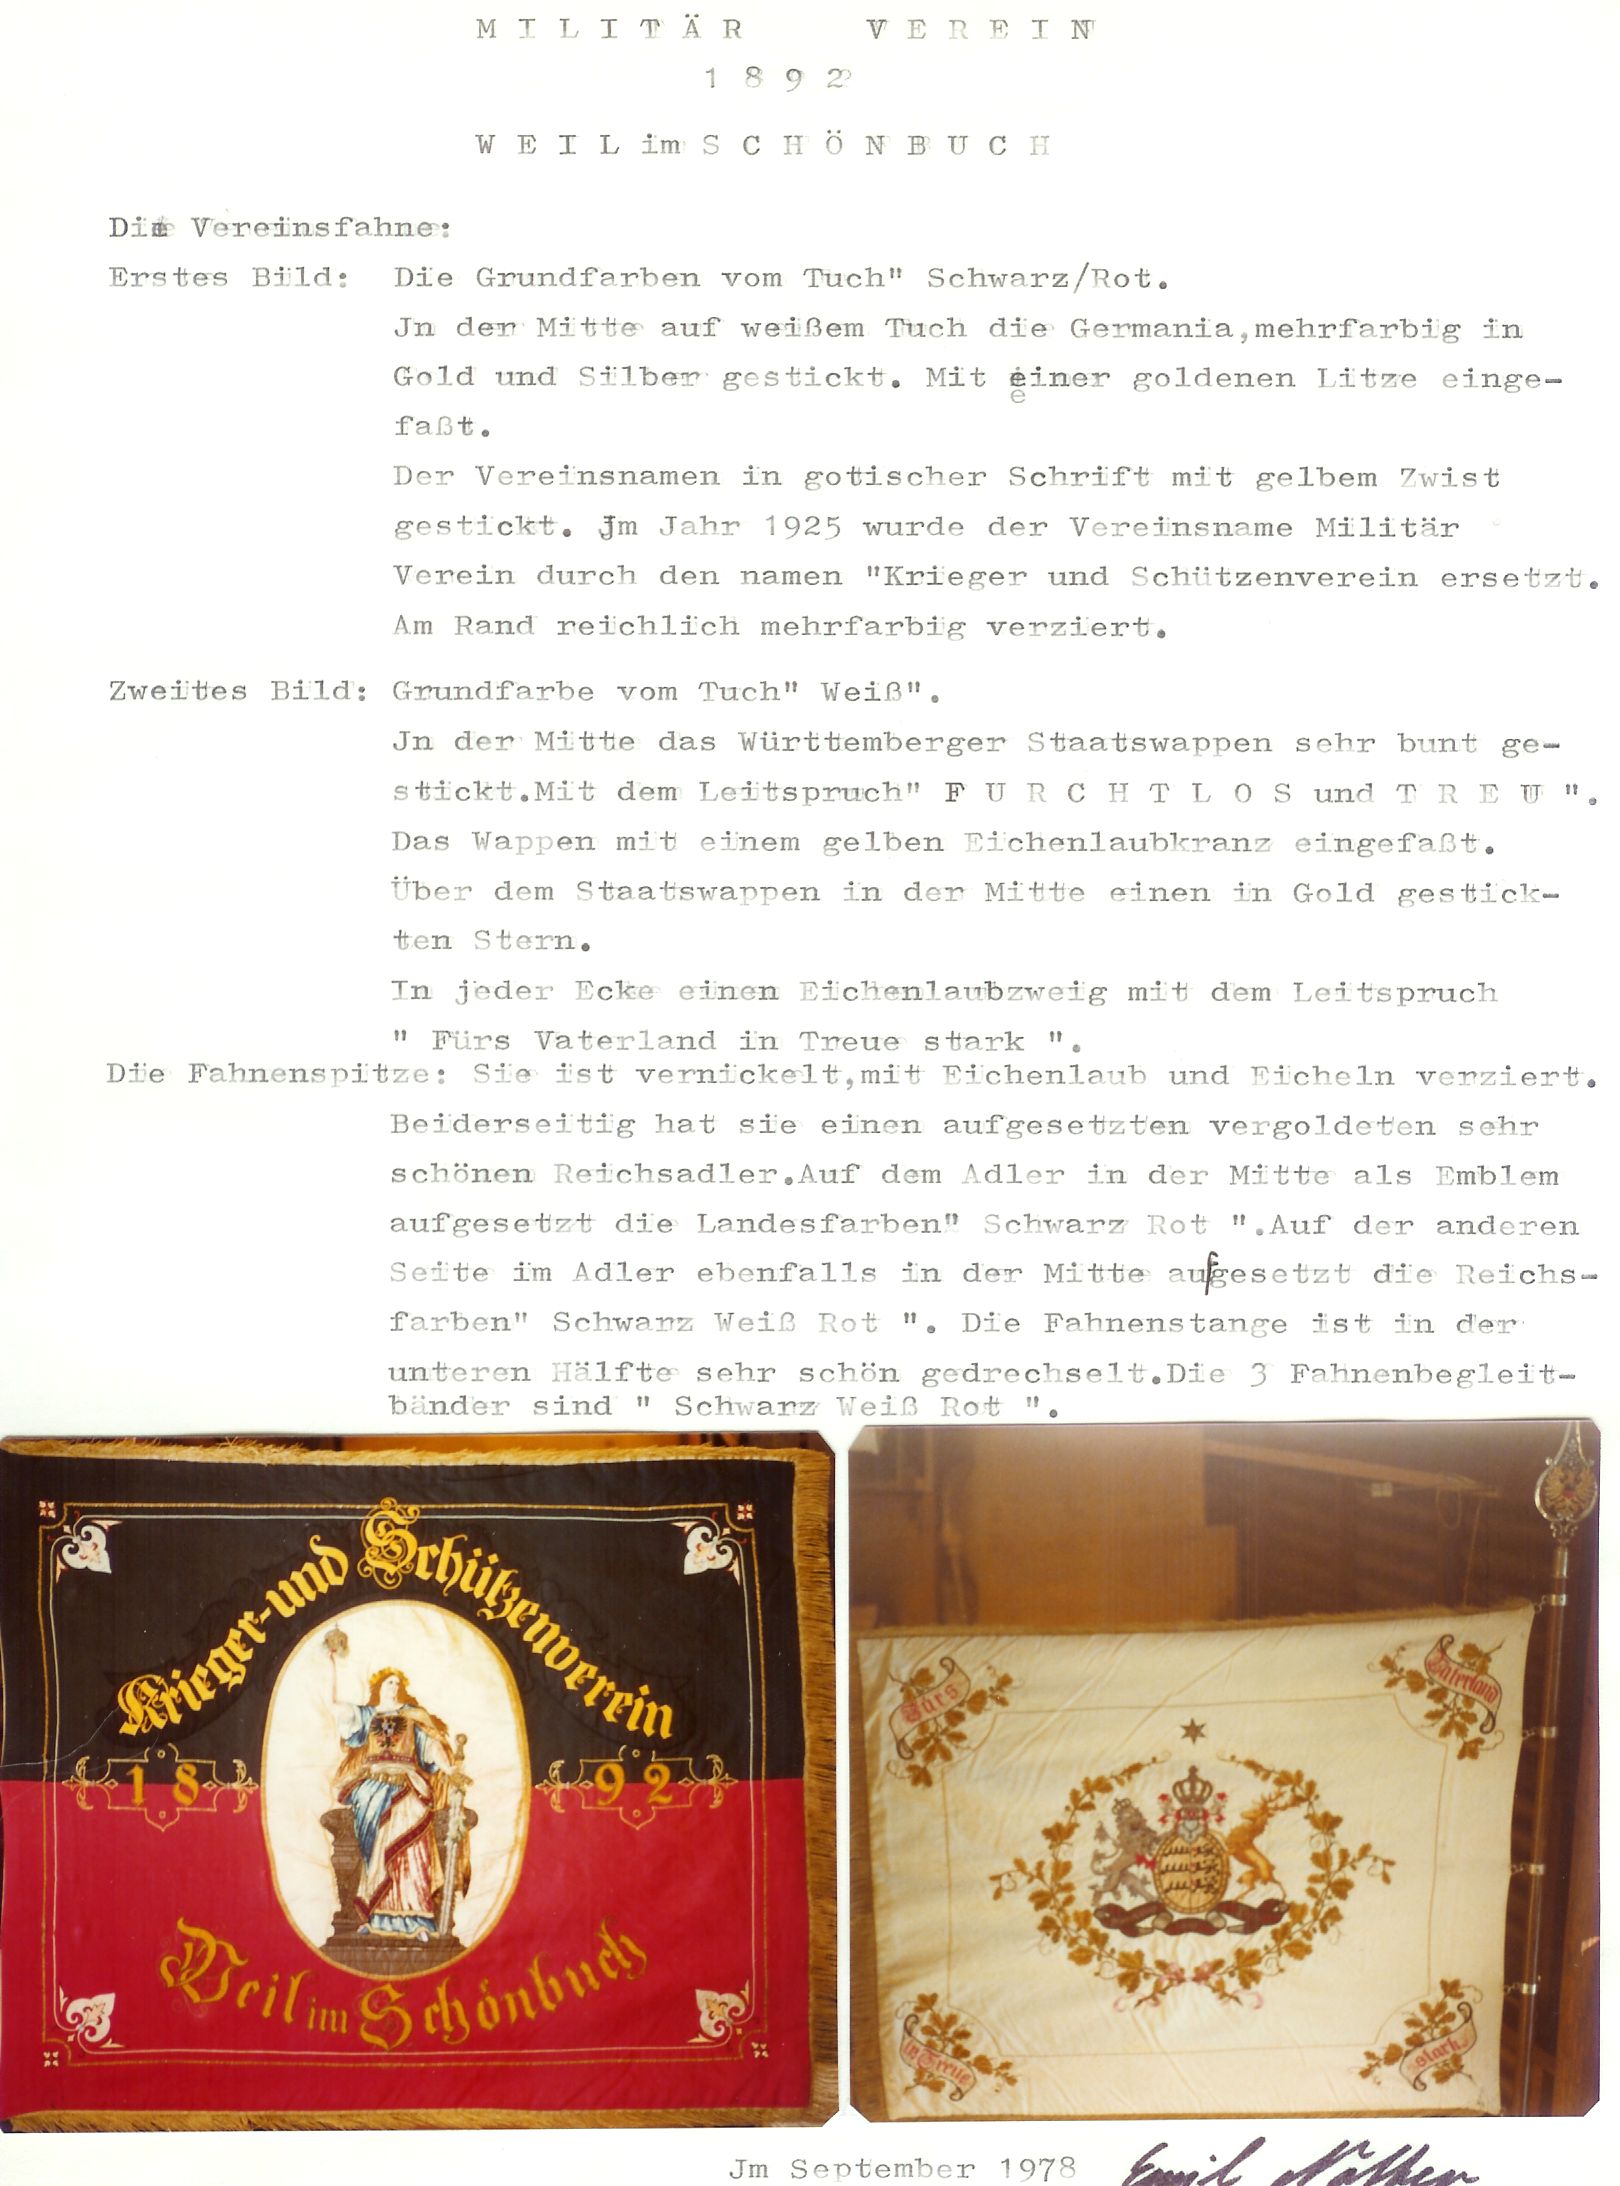 M I L I T Ä R   V E R E I N
1 8 9 2
W E I L im S C H Ö N B U C H
Die Vereinsfahne:
Erstes Bild: Die Grundfarben vom Tuch" Schwarz/Rot.
Jn der Mitte auf weißem Tuch die Germania,mehrfarbig in
Gold und Silber gestickt. Mit einer goldenen Litze einge-
faßt.
Der Vereinsnamen in gotischer Schrift mit gelbem Zwist
gestickt. Jm Jahr 1925 wurde der Vereinsname Militär
Verein durch den namen "Krieger und Schützenverein ersetzt.
Am Rand reichlich mehrfarbig verziert.
Zweites Bild: Grundfarbe vom Tuch" Weiß".
Jn der Mitte das Württemberger Staatswappen sehr bunt ge-
stickt.Mit dem Leitspruch" F U R C H T L O S und T R E U ".
Das Wappen mit einem gelben Eichenlaubkranz eingefaßt.
Über dem Staatswappen in der Mitte einen in Gold gestick-
ten Stern.
In jeder Ecke einen Eichenlaubzweig mit dem Leitspruch
" Fürs Vaterland in Treue stark ".
Die Fahnenspitze: Sie ist vernickelt,mit Eichenlaub und Eicheln verziert.
Beiderseitig hat sie einen aufgesetzten vergoldeten sehr
schönen Reichsadler.Auf dem Adler in der Mitte als Emblem
aufgesetzt die Landesfarben" Schwarz Rot ".Auf der anderen
Seite im Adler ebenfalls in der Mitte aufgesetzt die Reichs-
farben" Schwarz Weiß Rot ". Die Fahnenstange ist in der
unteren Hälfte sehr schön gedrechselt.Die 3 Fahnenbegleit-
bänder sind " Schwarz Weiß Rot ".
Krieger- und Schützenverein
18 92
Weil im Schönbuch
Fürs
Vaterland
in Treue
stark
Jm September 1978 Emil